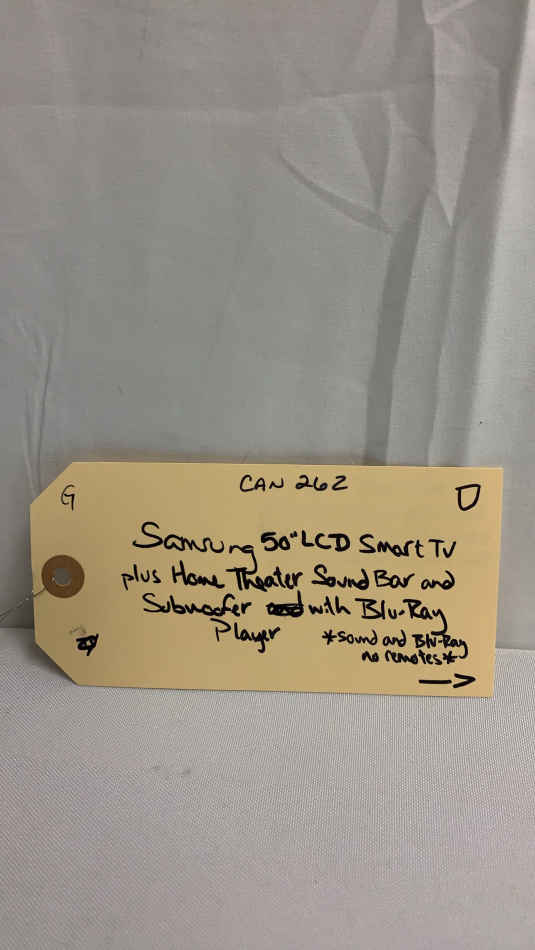 G
CAN 262
D
Samsung 50" LCD Smart TV
plus Home Theater Sound Bar and
Subwoofer with Blu-Ray
Player
*Sound and Blu-Ray
no remotes*